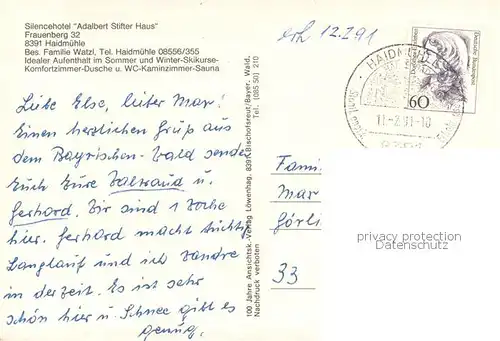 Silencehotel "Adalbert Stifter Haus"
Frauenberg 32
8391 Haidmühle
Bes. Familie Watzl, Tel. Haidmühle 08556/355
Idealer Aufenthalt im Sommer und Winter-Skikurse-
Komfortzimmer-Dusche u. WC-Kaminzimmer-Sauna
erh. 12.2.91
Liebe Else, lieber Max!
Einen herzlichen Gruß aus
dem Bayrischen-Wald senden
Euch Eure Waltraud u.
Gerhard. Wir sind 1 Woche
hier. Gerhard macht
Langlauf und ich wandre
in der Zeit. Es ist sehr
schön hier u. Schnee gibt es
genug.
100 Jahre Ansichtsk.-Verlag Löwenhag, 8391 Bischofsreut/Bayer. Wald,
Nachdruck verboten Tel. (085 50) 210
HAIDMÜHLE
11.-2.91-10
8391
Deutsche Bundespost
60
Fami
Mar
Görli
33
privacy protection
Datenschutz